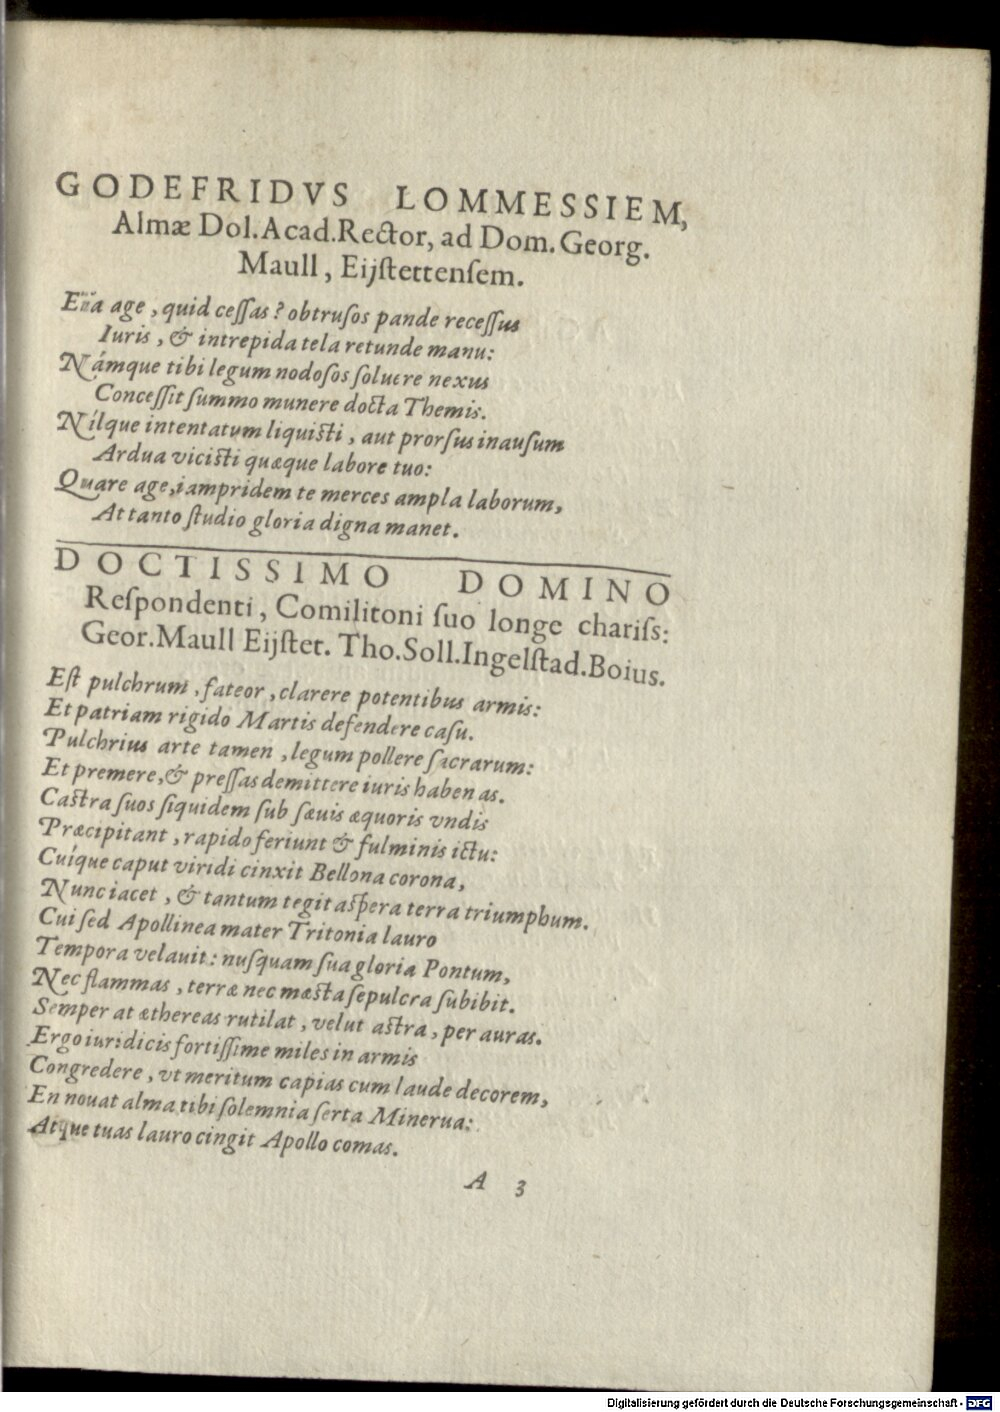 GODEFRIDVS LOMMESSIEM,
Almæ Dol. Acad. Rector, ad Dom. Georg.
Maull, Eijſtettenſem.
Eia age, quid ceſſas? obtruſos pande receſſus
Iuris, & intrepida tela retunde manu:
Námque tibi legum nodoſos ſoluere nexus
Conceſſit ſummo munere docta Themis.
Nílque intentatum liquiſti, aut prorſus inauſum
Ardua viciſti quæque labore tuo:
Quare age, iampridem te merces ampla laborum,
At tanto ſtudio gloria digna manet.
DOCTISSIMO DOMINO
Reſpondenti, Comilitoni ſuo longe chariſs:
Geor. Maull Eijſtet. Tho. Soll. Ingelſtad. Boius.
Eſt pulchrum, fateor, clarere potentibus armis:
Et patriam rigido Martis defendere caſu.
Pulchrius arte tamen, legum pollere ſacrarum:
Et premere, & preſſas demittere iuris habenas.
Caſtra ſuos ſiquidem ſub ſæuis æquoris vndis
Præcipitant, rapido feriunt & fulminis ictu:
Cuíque caput viridi cinxit Bellona corona,
Nunc iacet, & tantum tegit aſpera terra triumphum.
Cui ſed Apollinea mater Tritonia lauro
Tempora velauit: nuſquam ſua gloria Pontum,
Nec flammas, terræ nec mæſta ſepulcra ſubibit.
Semper at æthereas rutilat, velut aſtra, per auras.
Ergo iuridicis fortiſſime miles in armis
Congredere, vt meritum capias cum laude decorem,
En nouat alma tibi ſolemnia ſerta Minerua:
Atque tuas lauro cingit Apollo comas.
A 3
Digitalisierung gefördert durch die Deutsche Forschungsgemeinschaft - DFG